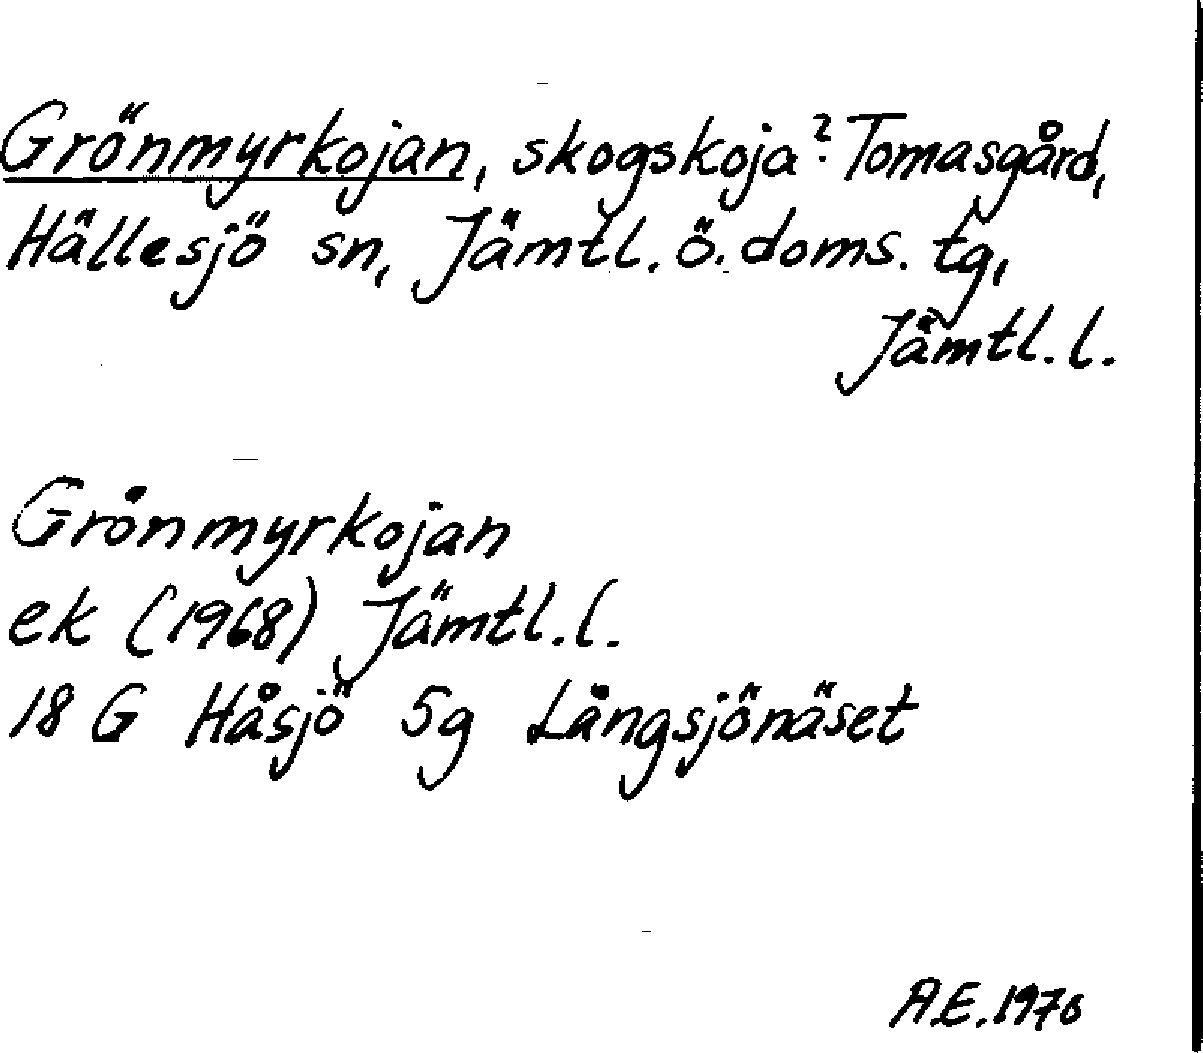 Grönmyrkojan, skogskoja? Tomasgård,
Hällesjö sn, Jämtl. ö. doms. tg,
Jämtl. l.
Grönmyrkojan
ek (1968) Jämtl. l.
18 G Håsjö 5g Långsjönäset
A.E. 1976